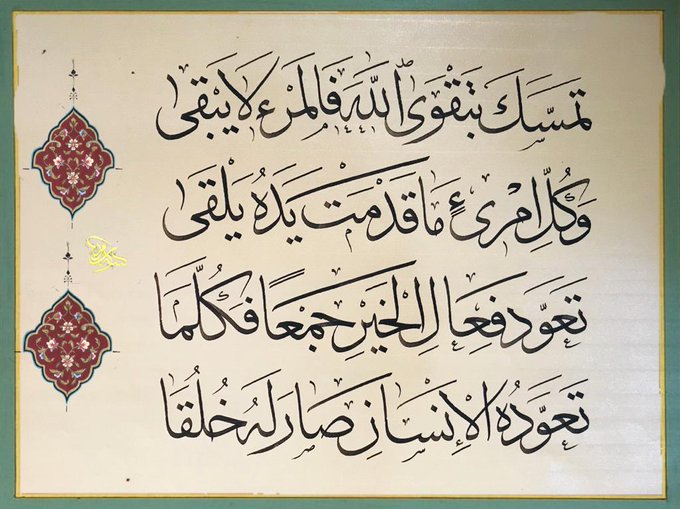 تمسّك بتَقْوَى اللّٰه فَالمرْءُ لَا يَبْقَى
وَكُلّ امْرِئٍ مَا قَدَّمَتْ يَدَهُ يَلْقَى
تعَوَّد فِعَالِ الْخَيْرِ جَمْعًا فَكُلَّمَا
تَعَوَّدُه الْإِنْسَانِ صَارَ لَهُ خُلُقَا